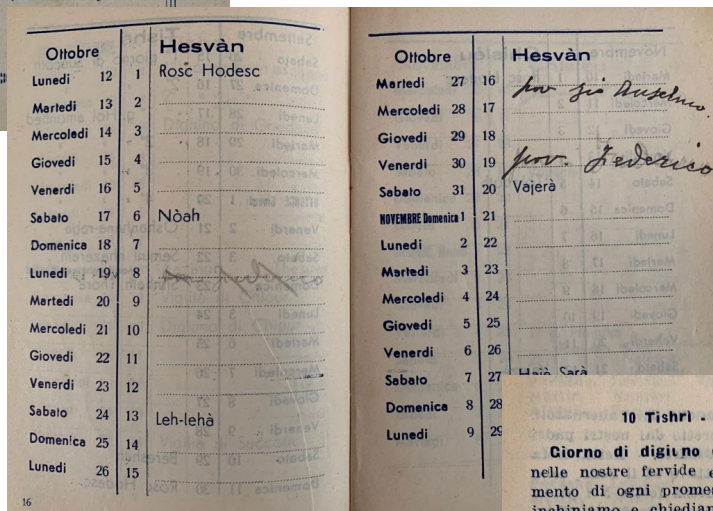 Ottobre Hesvàn
Lunedi 12 1 Rosc Hodesc
Martedi 13 2
Mercoledi 14 3
Giovedi 15 4
Venerdi 16 5
Sabato 17 6 Nòah
Domenica 18 7
Lunedi 19 8
Martedi 20 9
Mercoledi 21 10
Giovedi 22 11
Venerdi 23 12
Sabato 24 13 Leh-lehà
Domenica 25 14
Lunedi 26 15
16
Ottobre Hesvàn
Martedi 27 16 pov zio Anselmo.
Mercoledi 28 17
Giovedi 29 18
Venerdi 30 19 pov. Federico
Sabato 31 20 Vajerà
NOVEMBRE Domenica 1 21
Lunedi 2 22
Martedi 3 23
Mercoledi 4 24
Giovedi 5 25
Venerdi 6 26
Sabato 7 27 Hajè Sarà
Domenica 8 28
Lunedi 9 29
10 Tishri -
Giorno di digiuno
nelle nostre fervide
mento di ogni
inchiniamo e